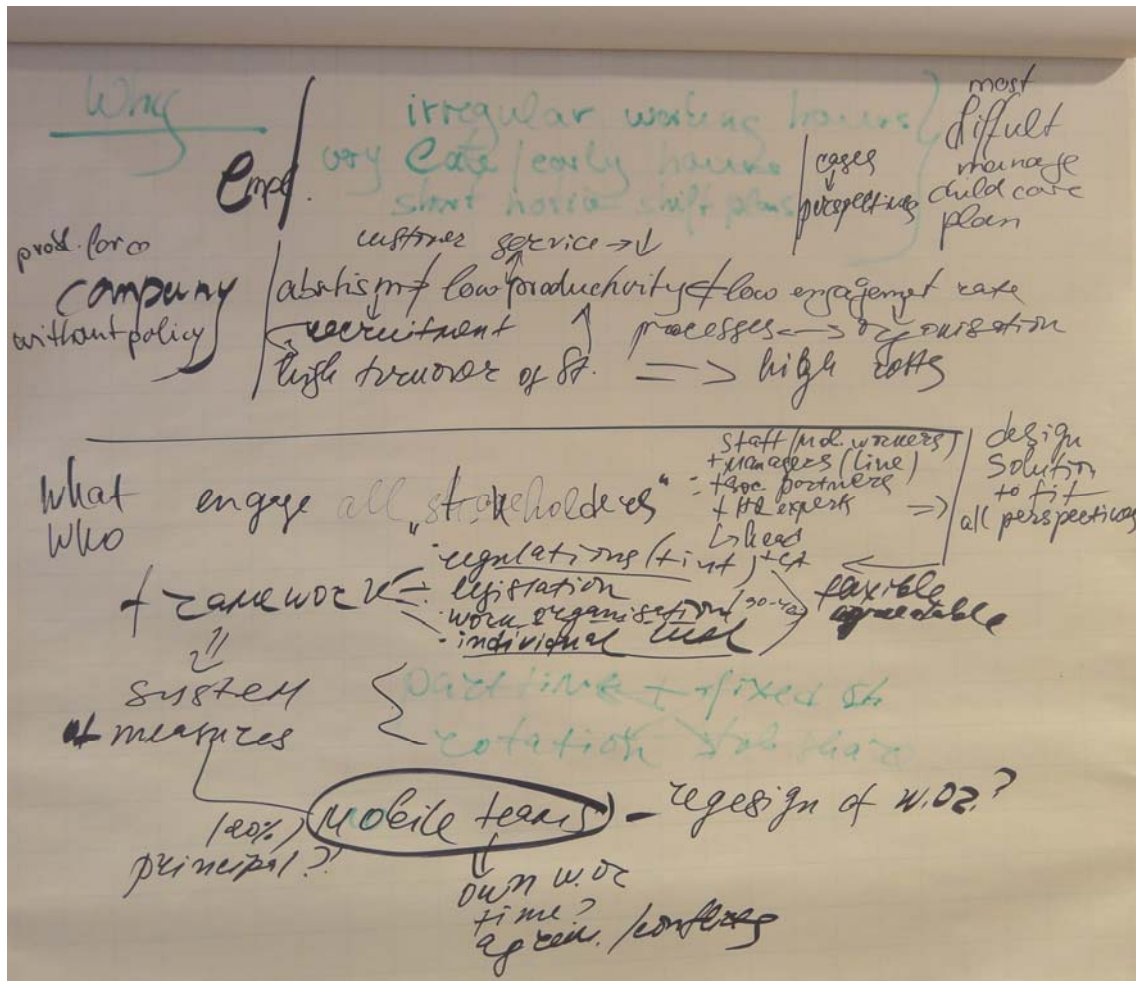 Why
Empl.
irregular working hours
very Late / early hours
short shift plans
cases
perspectives
most
diffult
manage
child care
plan
customer service → ↓
company
without policy
low productivity
low engagemet rate
recruitment
processes ↔ organisation
high turnover of St. => high costs
What
Who
engage all „stakeholders"
staff
+ managers (line)
+ soc. partners
+ experts
↳ head
=> design
solution
to fit
all perspectives
+ framework
- regulations (+ int)
- legislation
- work organisation
- individual
flexible
system
of measures
part time + fixed sh.
rotation
mobile teams
- regesign of w.oz.?
(20%)
principal?
own w.oz
time?
agreem.